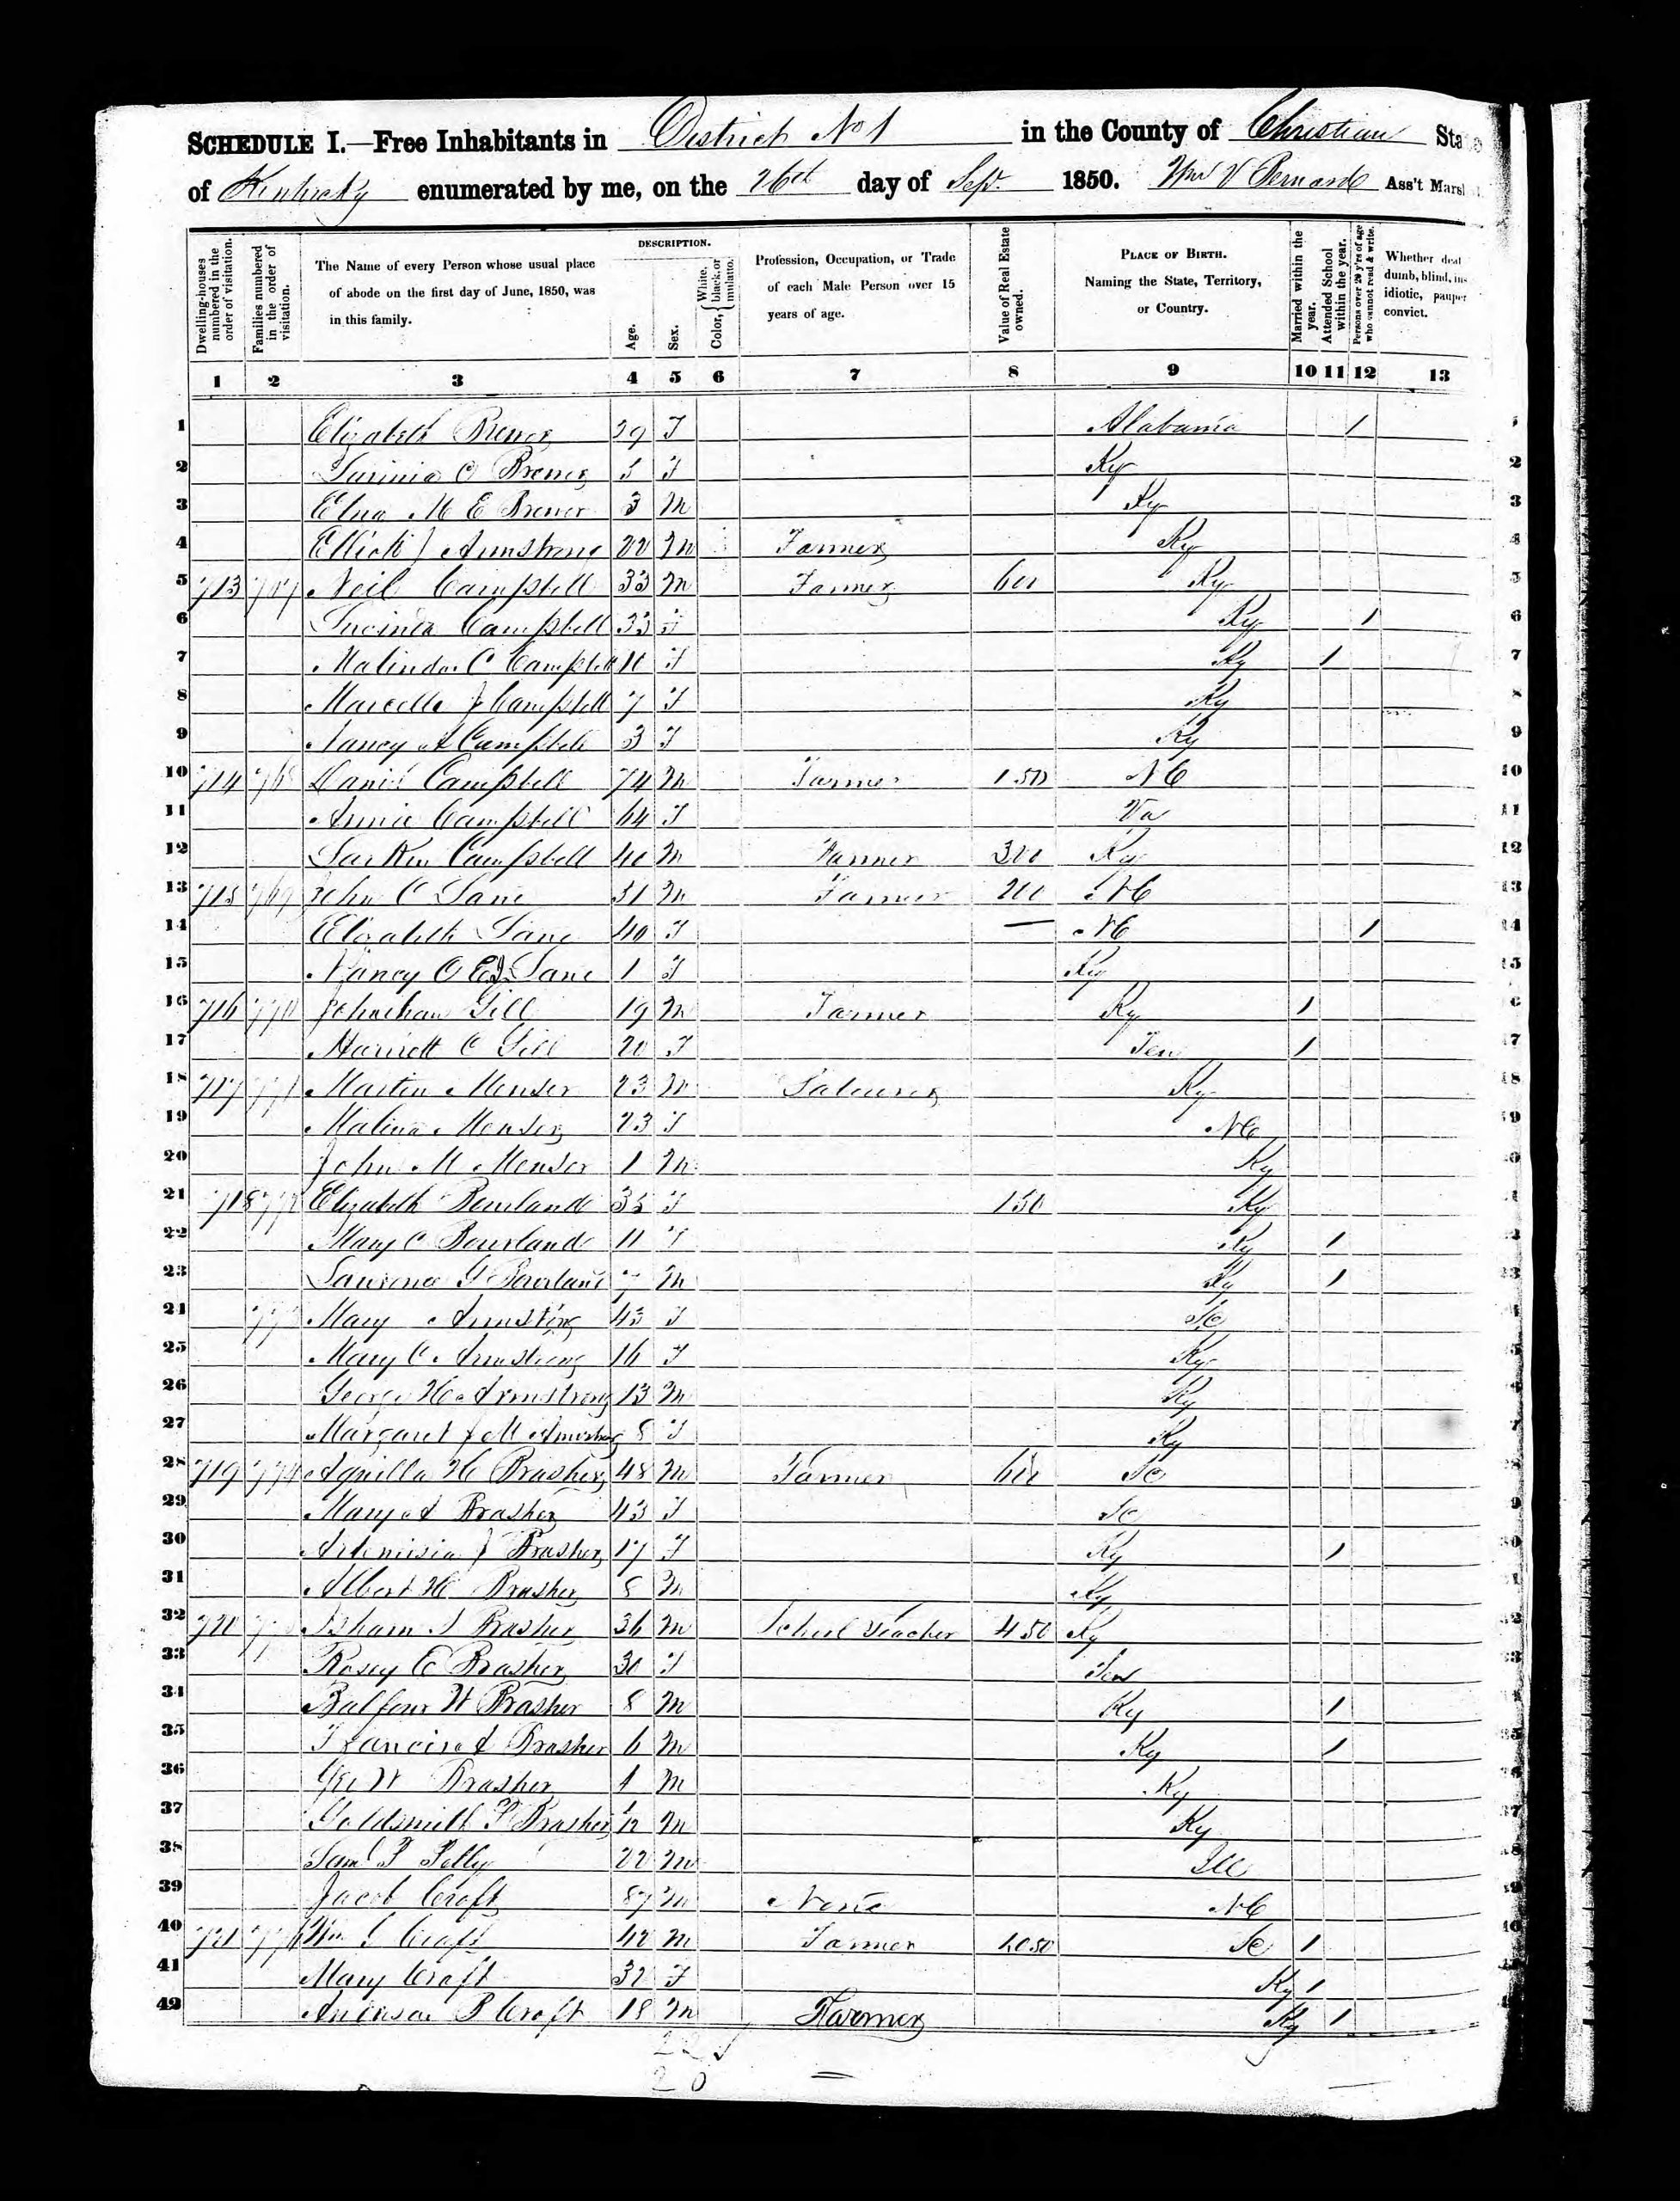 SCHEDULE I.—Free Inhabitants in District No 1 in the County of Christian State
of Kentucky enumerated by me, on the 26th day of Sept. 1850. Wm V Bernard Ass't Marsh
Dwelling-houses numbered in the order of visitation.
Families numbered in the order of visitation.
The Name of every Person whose usual place of abode on the first day of June, 1850, was in this family.
DESCRIPTION.
Age.
Sex.
Color, White, black, or mulatto.
Profession, Occupation, or Trade of each Male Person over 15 years of age.
Value of Real Estate owned.
PLACE OF BIRTH. Naming the State, Territory, or Country.
Married within the year.
Attended School within the year.
Persons over 20 y'rs of age who cannot read & write.
Whether deaf dumb, blind, in- idiotic, pauper convict.
1 2 3 4 5 6 7 8 9 10 11 12 13
1 Elizabeth Brewer 29 F Alabama 1
2 O Brewer F Ky 2
3 M E Brewer 3 M Ky 3
4 J Armstrong 22 M Farmer Ky 4
5 713 767 Neil Campbell 33 M Farmer 600 Ky 5
6 Campbell 33 F Ky 1 6
7 Malinda C Campbell 10 F Ky 1 7
8 Marcella J Campbell 7 F Ky 8
9 Nancy A Campbell 3 F Ky 9
10 714 768 Daniel Campbell 74 M Farmer 150 NC 10
11 Annie Campbell 64 F Va 11
12 Larkin Campbell 40 M Farmer 300 Ky 12
13 715 769 John C Lane 31 M Farmer 200 NC 13
14 Elizabeth Lane 40 F — NC 1 14
15 Nancy Lane 1 F Ky 15
16 716 770 Johnathan Gill 19 M Farmer Ky 1
17 Harriett C Gill 20 F Ten 1 17
18 717 771 Martin Menser 23 M Ky 18
19 Malina Menser 23 F NC 19
20 John M Menser 1 M Ky
21 718 772 Elizabeth Bourland 35 F 150 Ky
22 Mary C Bourland 11 F Ky 1
23 G Bourland 7 M Ky 1 23
24 773 Mary 43 F SC
25 Mary C Armstrong 16 F Ky
26 George W Armstrong 13 M Ky
27 Margaret J M Armstrong 8 F Ky
28 719 774 Aquilla W Brasher 48 M Farmer 600 SC
29 Mary A Brasher 43 F SC
30 Artemisia J Brasher 17 F Ky 1
31 Albert W Brasher 8 M Ky
32 720 Isham Brasher 36 M School Teacher 450 Ky
33 Rosey E Brasher 30 F Ten 33
34 Balfour W Brasher 8 M Ky 1
35 Francis A Brasher 6 M Ky 1 35
36 Geo W Brasher 4 M Ky 36
37 Goldsmith P Brasher 1/12 M Ky 37
38 Saml P 22 M Ill
39 Jacob Croft 87 M None NC
40 721 776 Wm Croft 42 M Farmer 1050 SC 1
41 Mary Croft 32 F Ky 1
42 Croft 18 M Farmer Ky 1
22 F
20